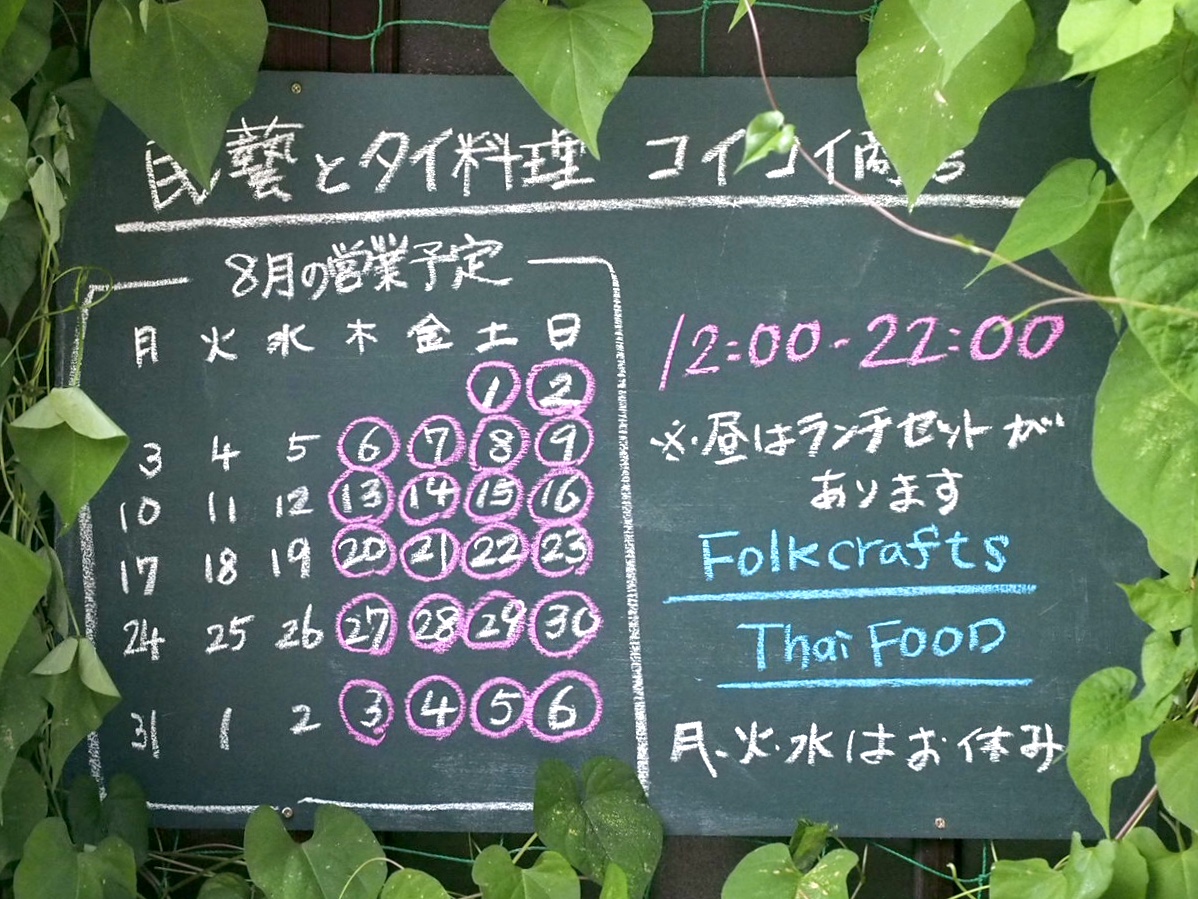 民藝とタイ料理 コイコイ商店
8月の営業予定
月 火 水 木 金 土 日
1 2
3 4 5 6 7 8 9
10 11 12 13 14 15 16
17 18 19 20 21 22 23
24 25 26 27 28 29 30
31 1 2 3 4 5 6
12:00-22:00
※昼はランチセットが
あります
Folkcrafts
Thai FOOD
月、火・水はお休み